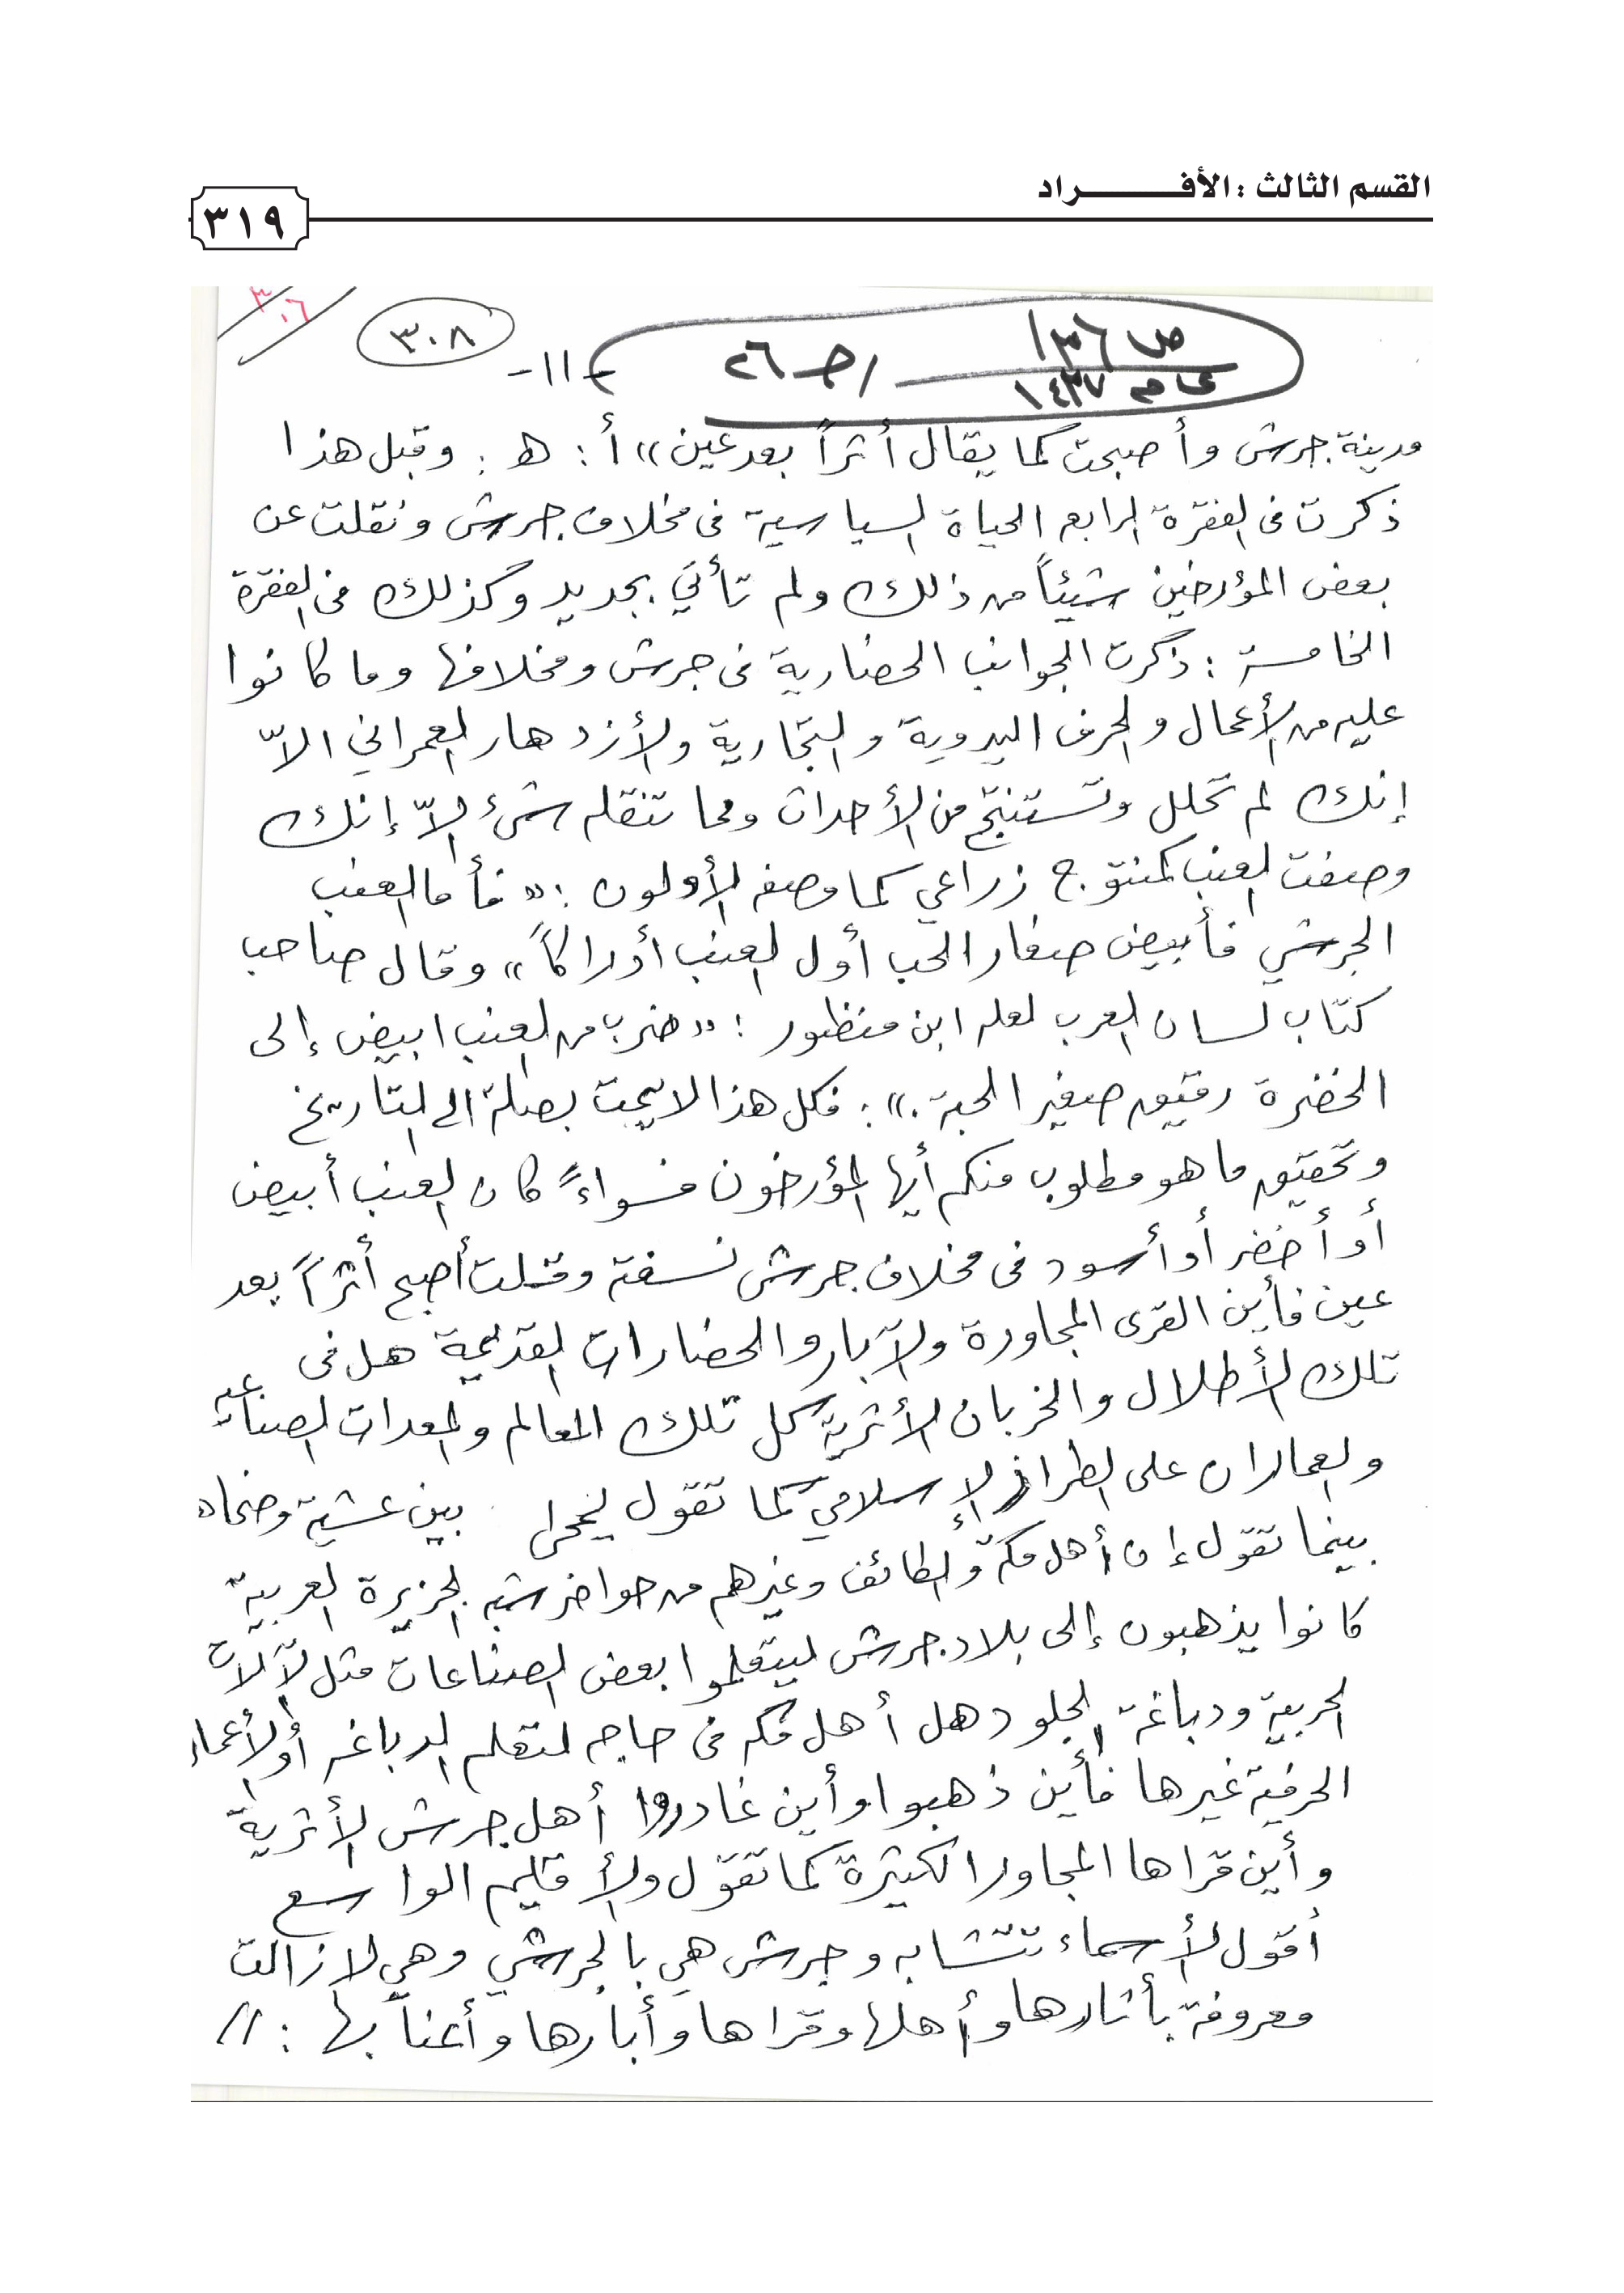 القسم الثالث : الأفـــــــراد
٣١٩
٣٠٦
٣٠٨
ص ١٣٦
عام ١٤٣٧
/ جـ ٢٦
-١١-
مدينة جرش وأصبحت كما يقال أثراً بعد عين» أ : هـ : وقبل هذا
ذكرت في الفقرة الرابعه الحياة السياسية في مخلاف جرش ونقلت عن
بعض المؤرخين شيئاً من ذلك ولم تأتي بجديد وكذلك في الفقرة
الخامسة : ذكرت الجوانب الحضارية في جرش ومخلافها وما كانوا
عليه من الأعمال والحرف اليدوية والتجارية والأزدهار العمراني الاّ
إنك لم تحلل وتستنتج من الأحداث ومما تنقله شيء إلاّ إنك
وصفت العنب كمنتوج زراعي كما وصفه الأولون : « فأما العنب
الجرشي فأبيض صغار الحب أول العنب أدراكاً» وقال صاحب
كتاب لسان العرب لعله ابن منظور : «ضرب من العنب ابيض إلى
الخضرة رقيق صغير الحبة .» : فكل هذا لا يمت بصلة الى التاريخ
وتحقيق ما هو مطلوب منكم أيها المؤرخون فسواءً كان العنب أبيض
أو أخضر أو أسود في مخلاف جرش نسفته وقلت أصبح أثراً بعد
عين فأين القرى المجاورة والآبار والحضارات القديمة هل في
تلك الأطلال والخربان الأثرية كل تلك المعالم والمعدات الصناعية
والعمارات على الطراز الإسلامي كما تقول بين عشية وضحاه
بينما تقول إن أهل مكة والطائف وغيرهم من حواضر شبه الجزيرة العربية
كانوا يذهبون إلى بلاد جرش ليتعلموا بعض الصناعات مثل الآلات
الحربية ودباغة الجلود هل أهل مكه في حاجه لتعلم الدباغه أو الأعمال
الحرفية غيرها فأين ذهبوا وأين غادروا أهل جرش الأثرية
وأين قراها المجاورا الكثيرة كما تقول والأقليم الواسع
أقول الأسماء تتشابه وجرش هي بالجرشي وهي لازالت
معروفة بأثارها وأهلها وقراها وأبارها وأعنابها : //